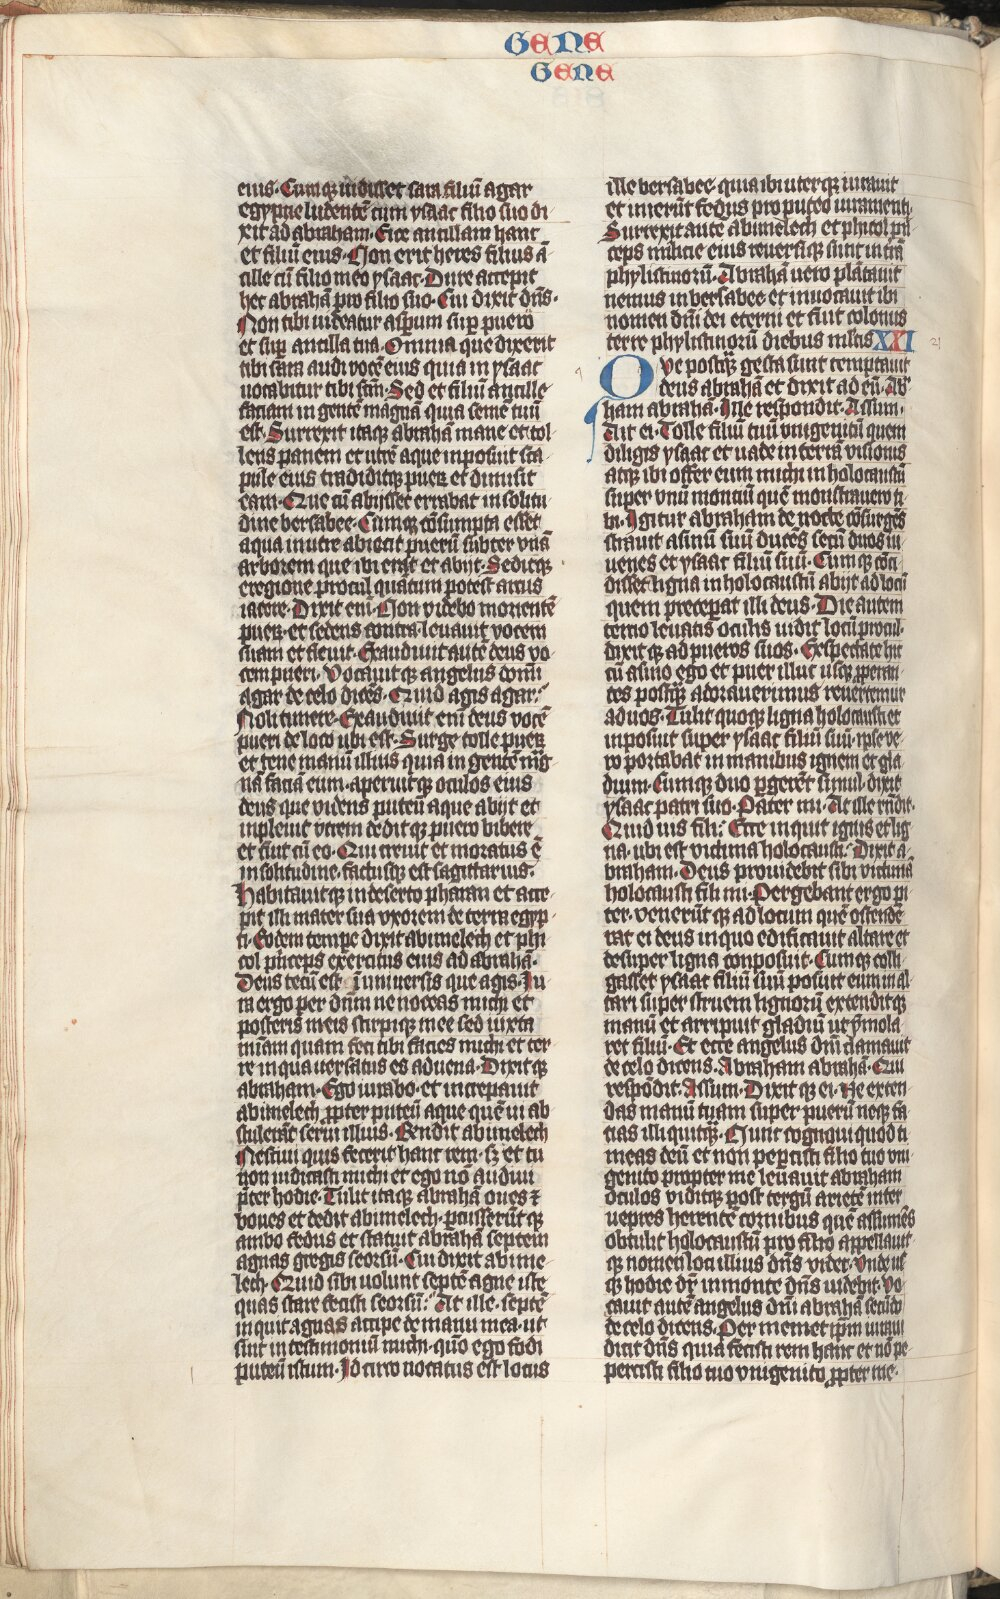 GENE
GENE
eius. Cumqꝫ uidisset sara filiū agar
egyptie ludentē cum ysaac filio suo di
xit ad abraham. Eice ancillam hanc
et filiū eius. Non erit heres filius ā
cille cū filio meo ysaac. Dure accepit
hec abrahā pro filio suo. Cui dixit dn̄s.
Non tibi uideatur asp̄um sup̄ puero
et sup̄ ancilla tua. Omnia que dixerit
tibi sara audi vocē eius quia in ysaac
uocabitur tibi semē. Sed et filiū ancille
faciam in gentē magnā quia semē tuū
est. Surrexit itaqꝫ abrahā mane et tol
lens panem et utrē aque inposuit sca
pule eius tradiditqꝫ puerꝫ et dimisit
eam. Que cū abijsset errabat in solitu
dine bersabee. Cumqꝫ cōsumpta esset
aqua in utre abiecit puerū subter unā
arborem que ibi erāt et abijt. Seditqꝫ
eregione procul quātum potest arcus
iacere. Dixit eni. Non videbo morientē
puerꝫ et sedens contra leuauit vocem
suam et fleuit. Exaudiuit autē deus vo
cem pueri. Vocauitqꝫ angelus domī
agar de celo dicēs. Quid agis agar:
Noli timere. Exaudiuit eni deus vocē
pueri de loco ubi est. Surge tolle puerꝫ
et tene manū illius quia in gentē mag
nā faciā eum. aperuitqꝫ oculos eius
deus que videns puteū aque abijt et
inpleuit vtrem deditqꝫ puero bibere
et fuit cū eo. Qui creuit et moratus ē
in solitudine. factusqꝫ est sagittarius.
Habitauitqꝫ in deserto pharan et acce
pit illi mater sua vxorem de terra egyp
ti. Eodem tempe dixit abimelech et phi
col p̄nceps exercitus eius ad abrahā.
Deus tecū est i uniuersis que agis. Iu
ra ergo per dn̄m ne noceas michi et
posteris meis stirpiqꝫ mee sed iuxta
miām quam feci tibi facies michi et ter
re in qua uersatus es aduena. Dixitqꝫ
abraham. Ego iurabo. et increpauit
abimelech ꝓpter puteū aque quē ui ab
stulerāt serui illius. Rendit abimelech
Nesciui quis fecerit hanc rem. sꝫ et tu
non indicasti michi et ego nō audiui
p̄ter hodie. Tulit itaqꝫ abrahā oues ⁊
boues et dedit abimelech. ꝑcusserūtqꝫ
ambo fedus et statuit abrahā septem
agnas gregis seorsū. Cui dixit abime
lech. Quid sibi uolunt septē agne iste
quas stare fecisti seorsū: At ille. septē
inquit agnas accipe de manu mea. ut
sint in testimoniū michi. quō ego fodi
puteū istum. Idcirco uocatus est locus
ille bersabee. quia ibi uterqꝫ iurauit
et inierūt fedus pro puteo iuramenti.
Surrexit autē abimelech et phicol pn̄
ceps milicie eius reuersiqꝫ sunt in trā
phylistinorū. Abrahā uero plātauit
nemus in bersabee et inuocauit ibi
nomen dn̄i dei eterni et fuit colonus
terre phylistinorū diebus mltis XXI 21
Que postqꝫ gesta sunt temptauit
deus abrahā et dixit ad eū. Ab
ham abrahā. Ille respondit. Assum.
Ait ei. Tolle filiū tuū vnigenitū quem
diligis ysaac et uade in terrā visionis
atqꝫ ibi offer eum michi in holocaustū
super vnū montiū quē monstrauero ti
bi. Igitur abraham de nocte cōsurgēs
strauit asinū suū ducēs secū duos iu
uenes et ysaac filiū suū. Cumqꝫ cōci
disset ligna in holocaustū abijt ad locū
quem preceꝑat illi deus. Die autem
tercio leuatis oculis uidit locū procul.
dixitqꝫ ad pueros suos. Exspectate hic
cū asino ego et puer illuc usqꝫ ꝓperan
tes postqꝫ adorauerimus reuertemur
ad uos. Tulit quoqꝫ ligna holocausti et
inposuit super ysaac filiū suū. ipse ve
ro portabat in manibus ignem et gla
dium. Cumqꝫ duo ꝑgerēt simul. dixit
ysaac patri suo. Pater mi. At ille rn̄dit.
Quid uis fili: Ecce inquit ignis et lig
na. ubi est victima holocausti: Dixit a
braham. Deus prouidebit sibi victimā
holocausti fili mi. Pergebant ergo pi
ter. venerūtqꝫ ad locum quē ostende
rat ei deus in quo edificauit altare et
desuper ligna conposuit. Cumqꝫ colli
gasset ysaac filiū suū posuit eum in al
tari super struem lignorū extenditqꝫ
manū et arripuit gladiū ut ymola
ret filiū. Et ecce angelus dn̄i clamauit
de celo dicens. Abraham abrahā. Qui
respōdit. Assum. Dixitqꝫ ei. Ne exten
das manū tuam super puerū neqꝫ fa
cias illi quitqꝫ. Nunc cognoui quod ti
meas deū et non peꝑcisti filio tuo vni
genito propter me leuauit abraham
oculos viditqꝫ post tergū arietē inter
uepres herentē cornibus quē assumēs
obtulit holocaustū pro filio appellauit
qꝫ nomen loci illius dn̄s videt. Vnde us
qꝫ hodie dr̄ in monte dn̄s uidebit. Vo
cauit autē angelus dn̄i abrahā secūdo
de celo dicens. Per memet ip̄m iuraui
dicit dn̄s quia fecisti rem hanc et nō pe
percisti filio tuo vnigenito ꝓpter me.